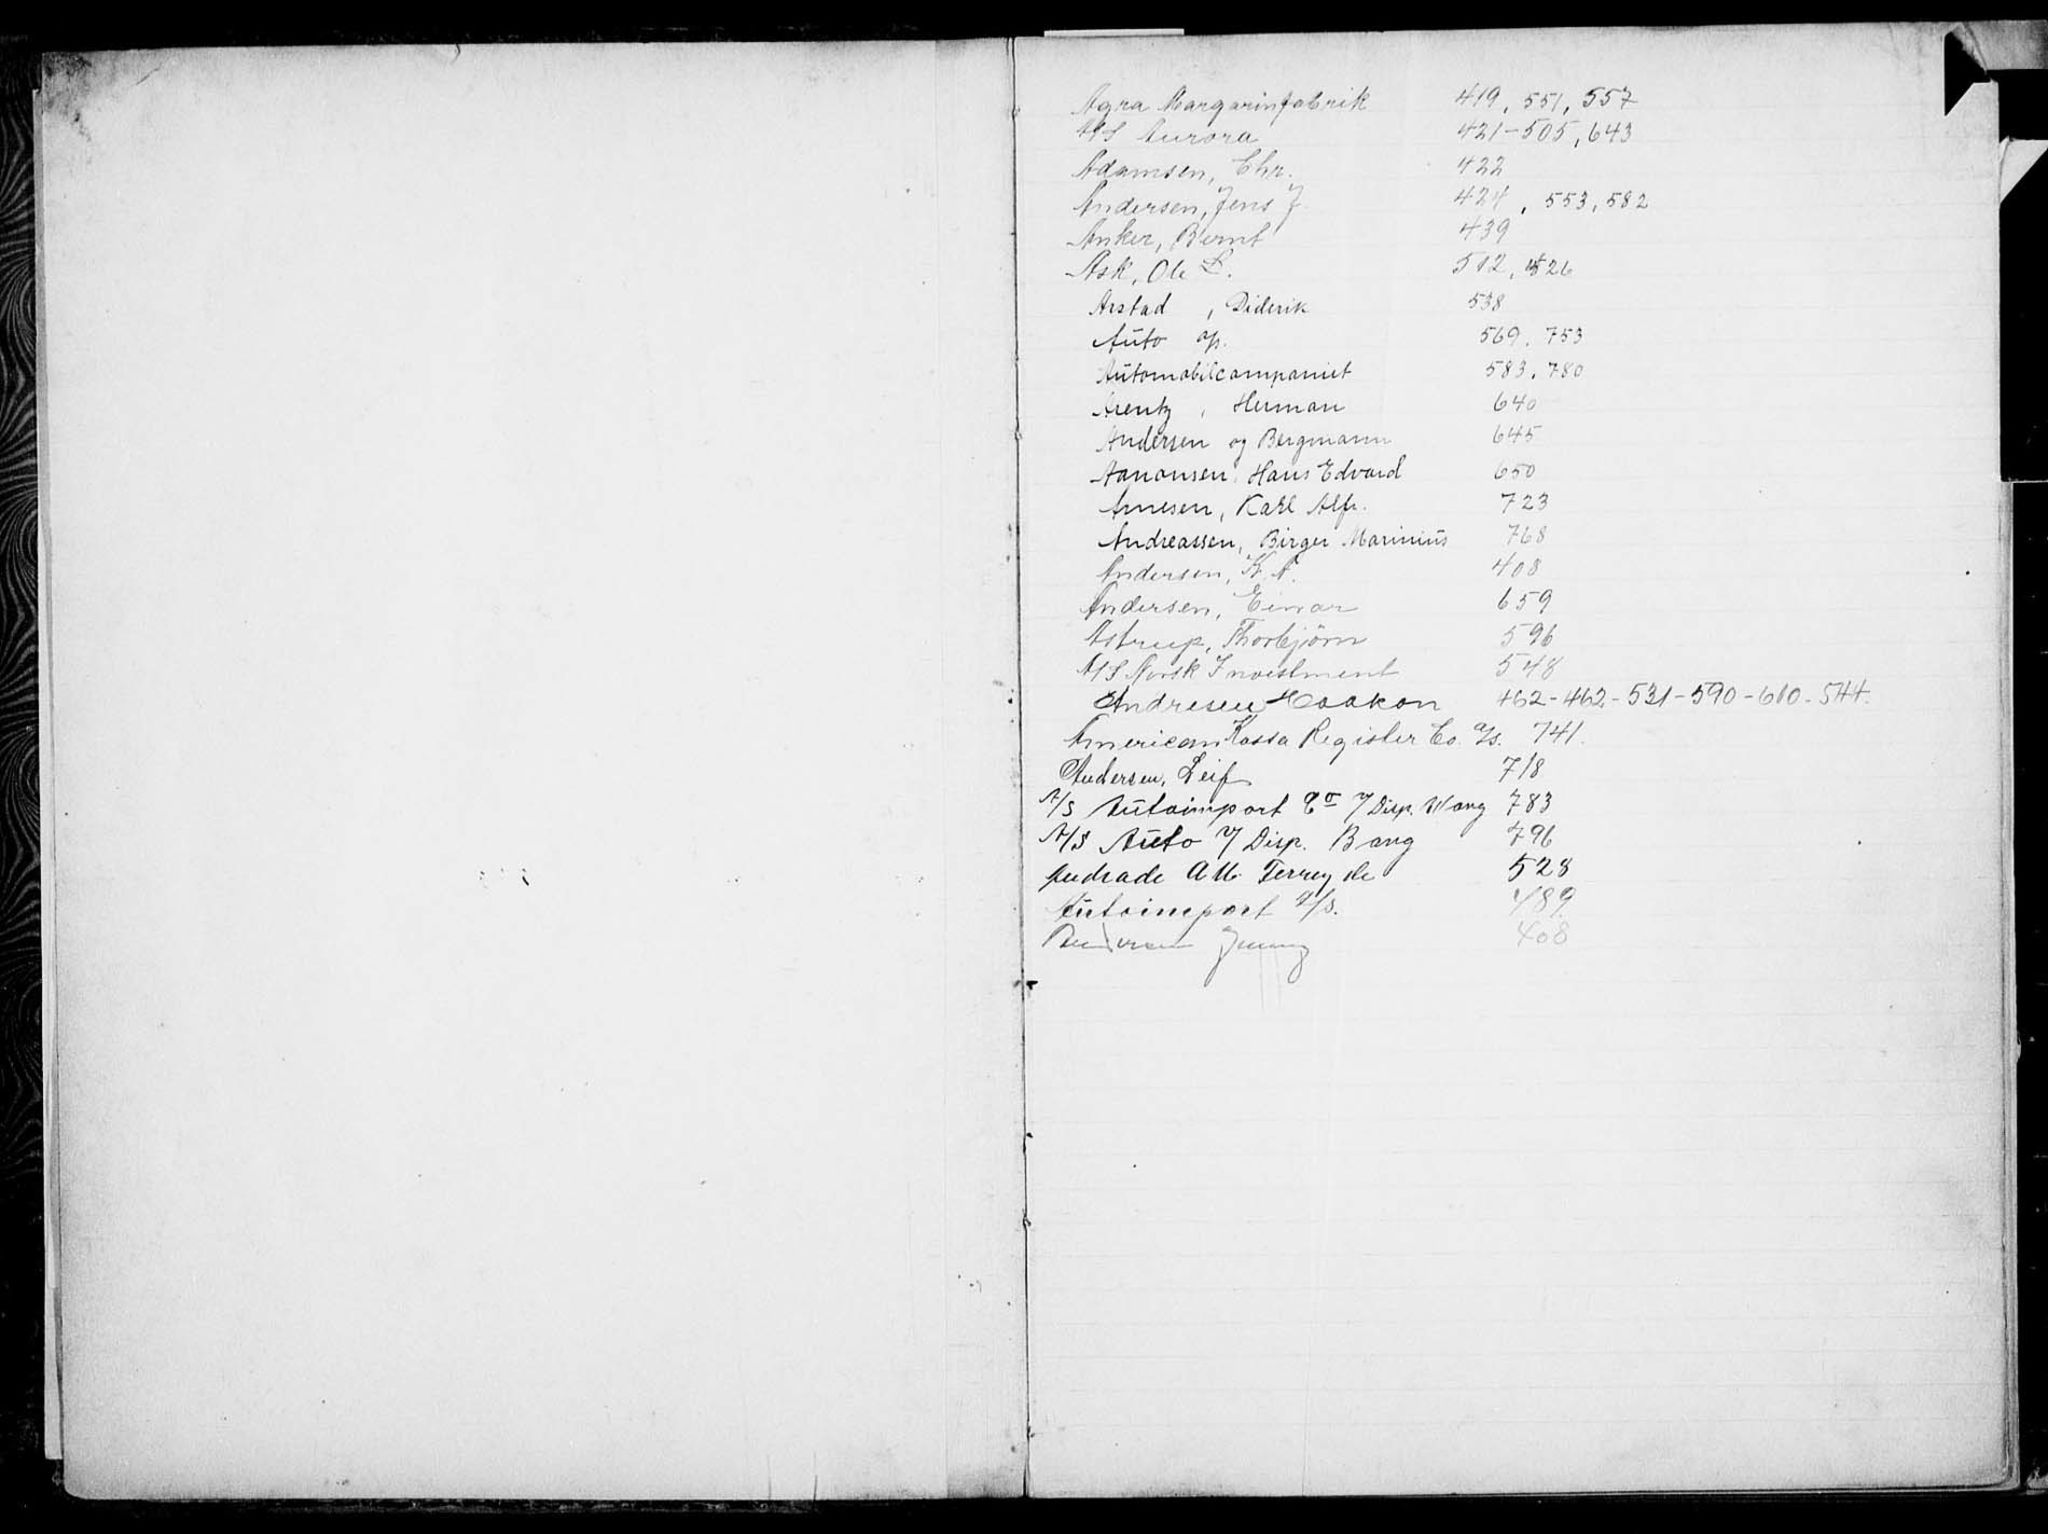 Agra Margarinfabrik 419, 551, 557
A/S Aurora 421-505, 643
Adamsen, Chr. 422
Andersen, Jens J. 424, 553, 582
Anker, Bernt 439
Ask, Ole L. 512, 526
Arstad, Diderik 538
Auto a/s. 569, 753
Automobilcompaniet 583, 780
Arentz, Herman 640
Andersen og Bergmann 645
Aanonsen, Hans Edvard 650
Arnesen, Karl Alfr. 723
Andreassen, Birger Marinius 768
Andersen, K. A. 408
Andersen, Einar 659
Astrup, Thorbjörn 596
A/S Norsk Investment 548
Andresen Haakon 462-462-531-590-610-544.
American Kassa Register Co. a/s. 741.
Andersen, Leif 718
A/S Autoimport Co v/ Disp. Wang 783
A/S Auto v/ Disp. Bang 796
Andrade de 528
Autoimport A/S. 789
408